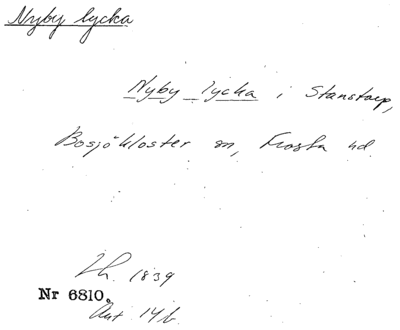 Nyby lycka
Nyby lycka i Stanstorp,
Bosjökloster sn, Frosta hd.
Lh. 1839
Nr 6810.
Akt 146.